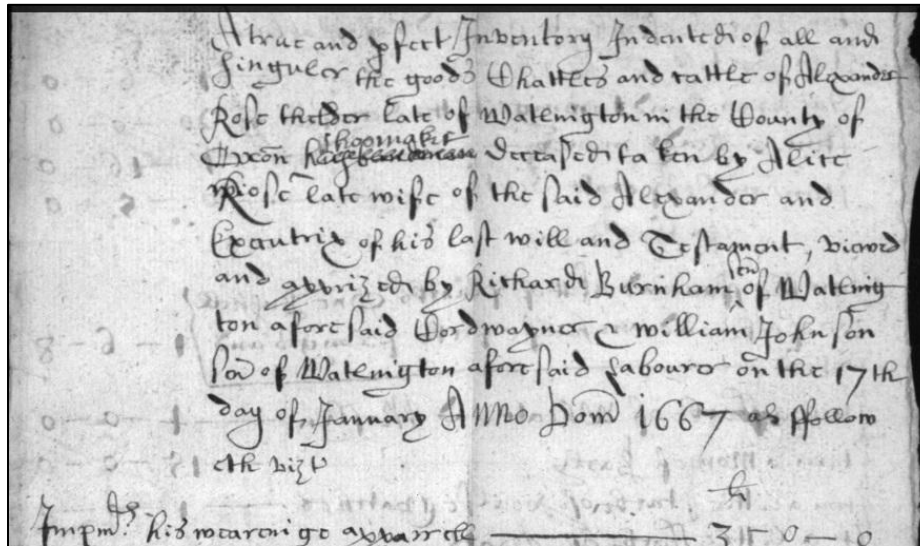 A true and pfect Inventory Indented of all and
Singuler the goods Chattles and cattle of Alexander
Rose thelder late of Watlington in the County of
shoomaker
Oxon deceased taken by Alice
Rose late wife of the said Alexander and
Executrix of his last will and Testament, viewed
and apprized by Richard Burnham sen of Watling
ton aforesaid Cordwayner & william Johnson
sen of Watlington aforesaid Labourer on the 17th
day of January Anno Dom 1667 as ffollow
eth vizt
li
Impmd his weareinge apparrell 3 0 0